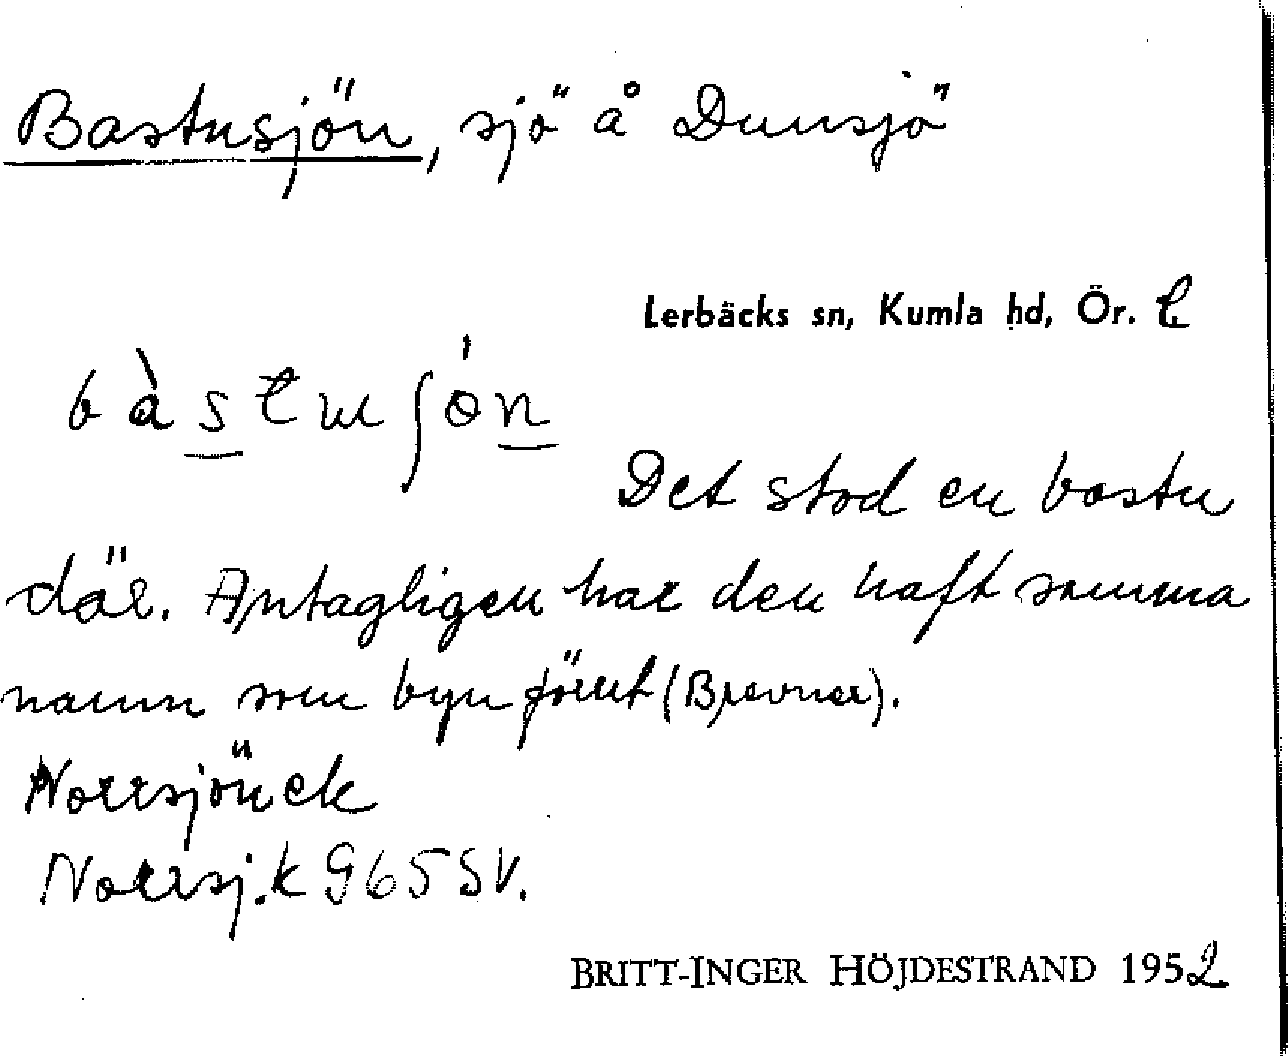 Bastusjön, sjö å Dunsjö
Lerbäcks sn, Kumla hd, Ör. l.
bàstuʃón
Det stod en bastu
där. Antagligen har den haft samma
namn som byn förut (Brevner).
Norrsjön ek
Norrsj. k 965 SV.
BRITT-INGER HÖJDESTRAND 1952